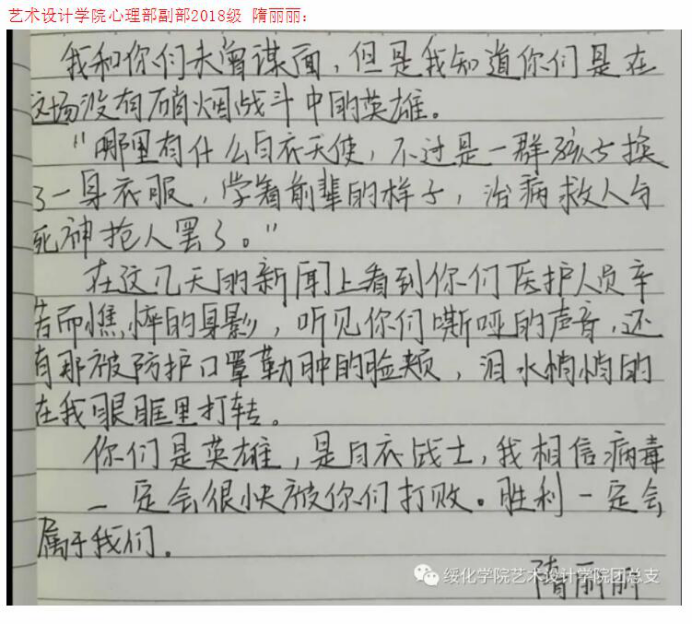 艺术设计学院心理部副部2018级 隋丽丽：
我和你们未曾谋面，但是我知道你们是在
这场没有硝烟战斗中的英雄。
“哪里有什么白衣天使，不过是一群孩子换
了一身衣服，学着前辈的样子，治病救人与
死神抢人罢了。”
在这几天的新闻上看到你们医护人员辛
苦而憔悴的身影，听见你们嘶哑的声音，还
有那被防护口罩勒肿的脸颊，泪水悄悄的
在我眼眶里打转。
你们是英雄，是白衣战士，我相信病毒
一定会很快被你们打败。胜利一定会
属于我们。
隋丽丽
绥化学院艺术设计学院团总支